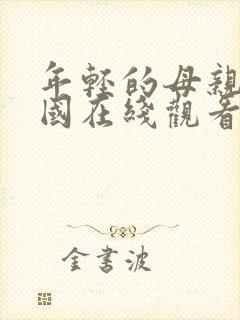 年輕的母親
國在綫觀看
金書波